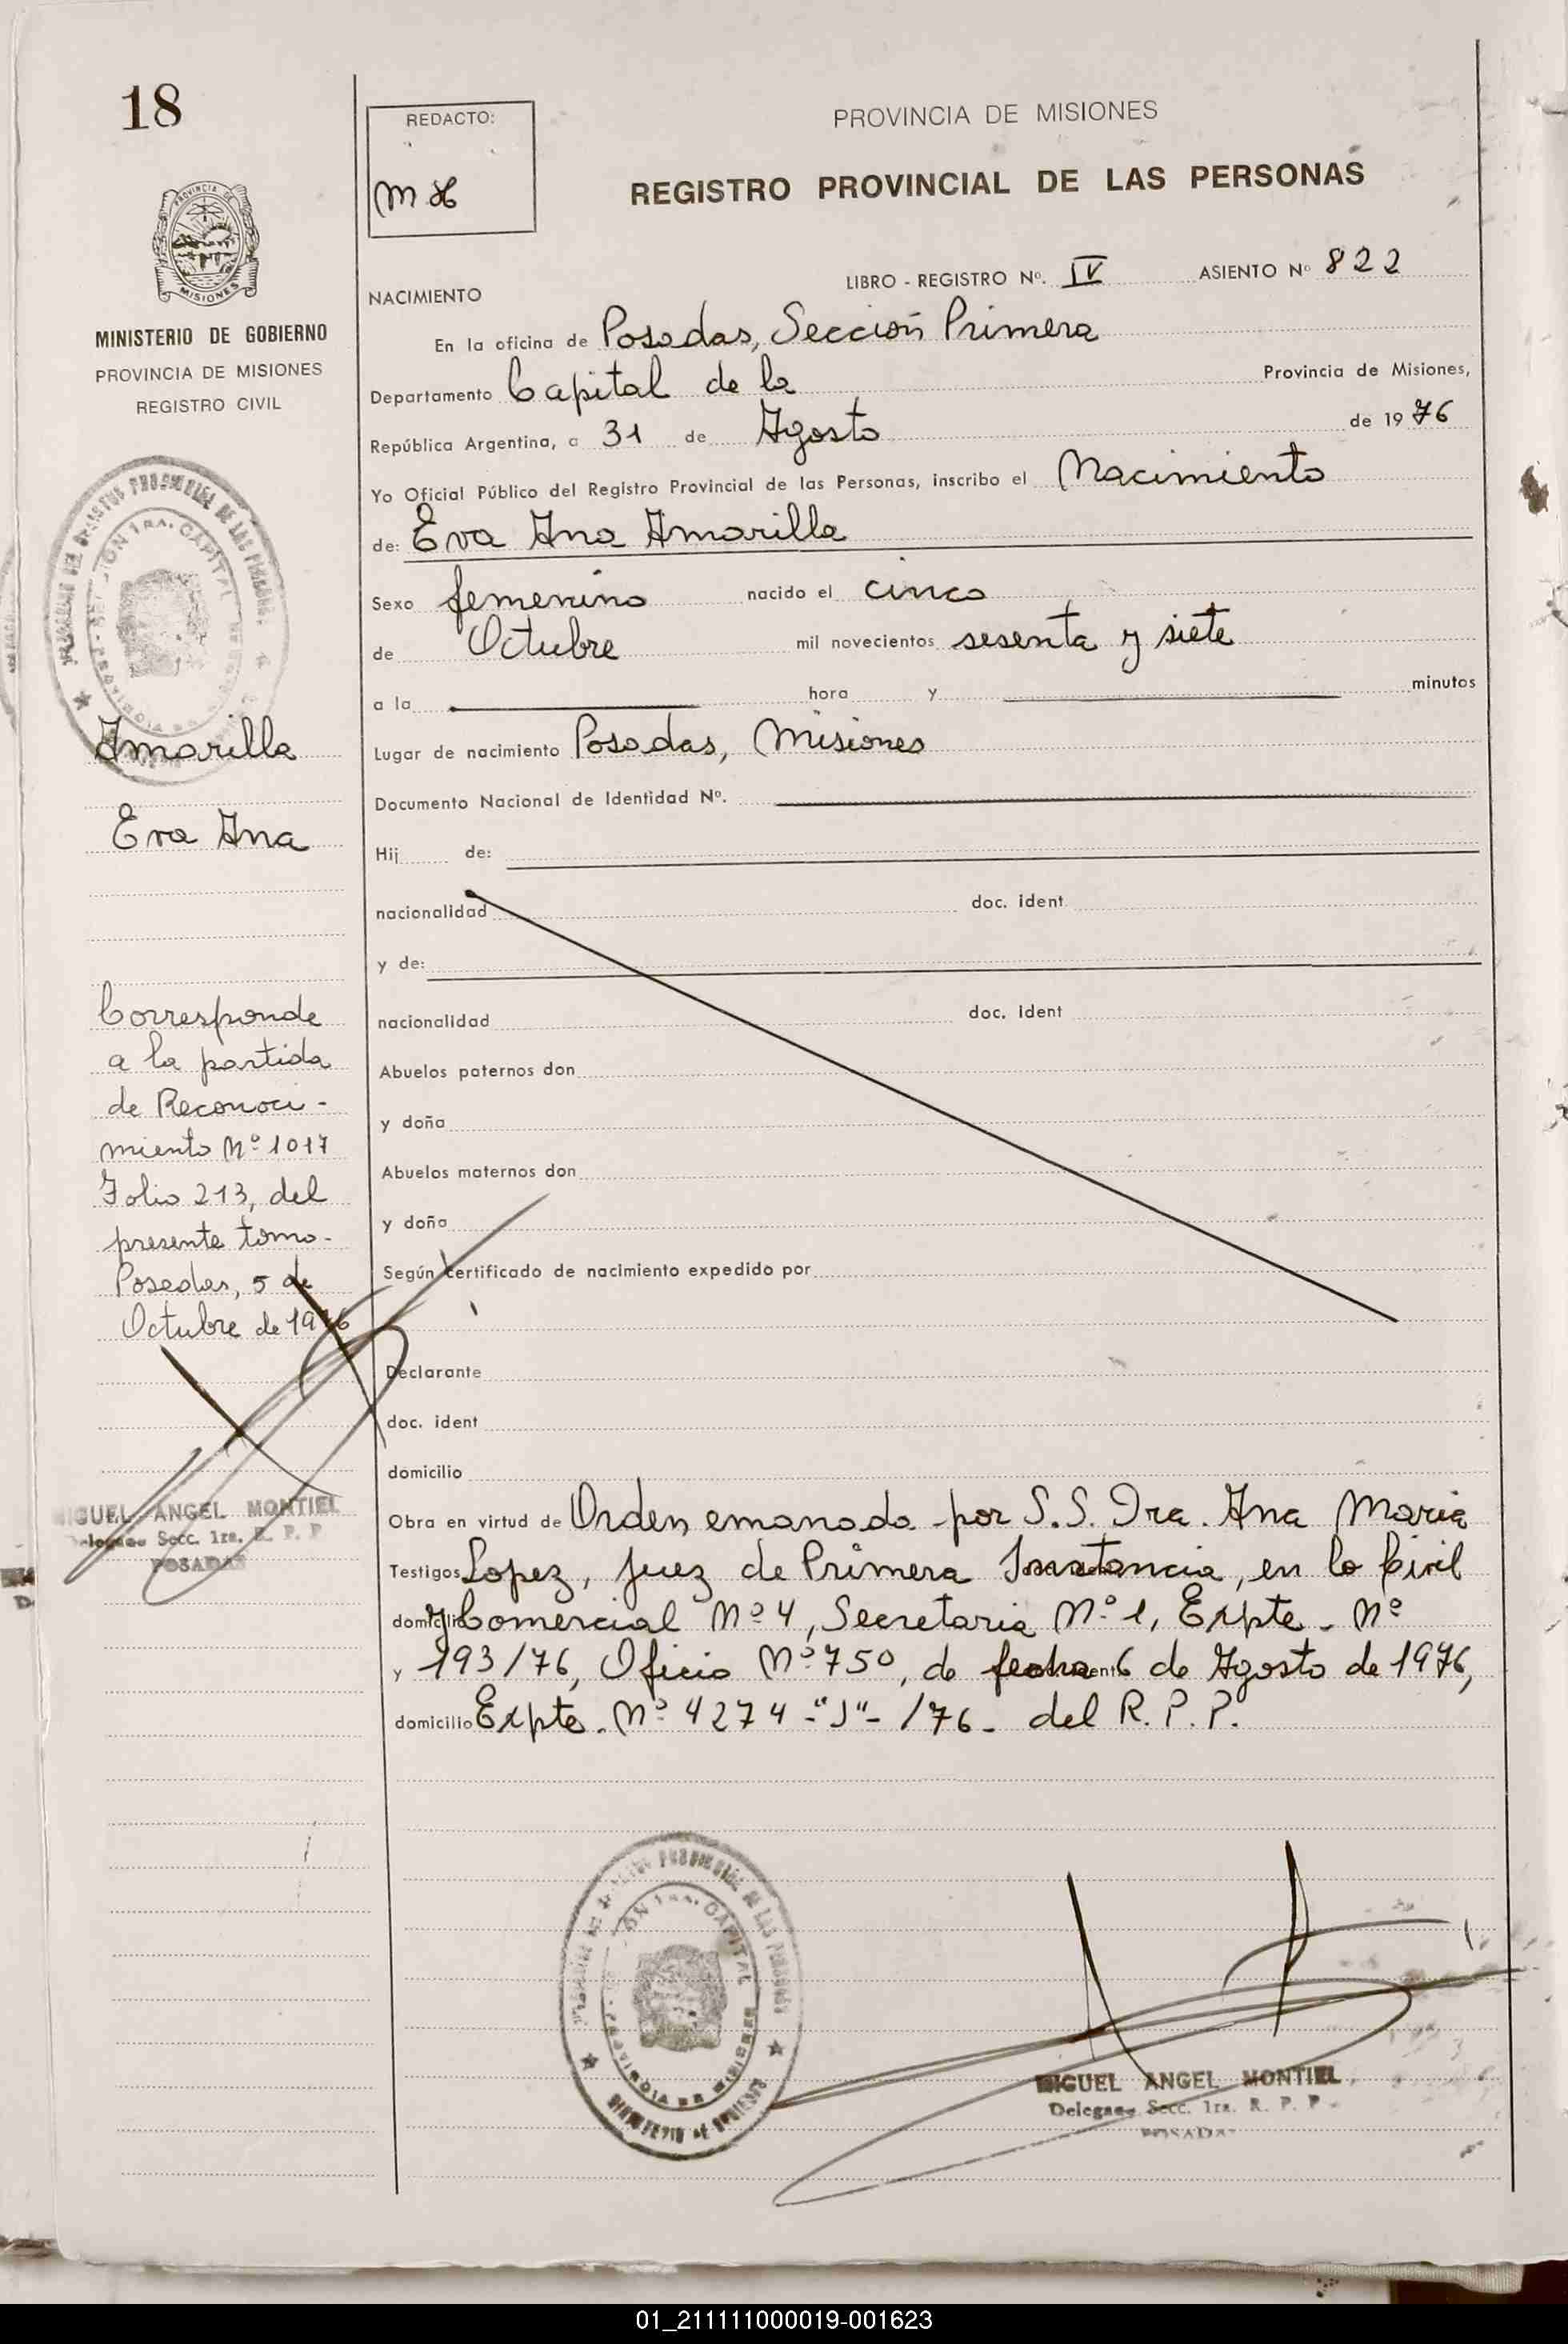 18
PROVINCIA DE MISIONES
MINISTERIO DE GOBIERNO
PROVINCIA DE MISIONES
REGISTRO CIVIL
Amarilla
Eva Ana
Corresponde
a la partida
de Reconoci-
miento Nº 1017
Folio 213, del
presente tomo-
Posadas, 5 de
Octubre de 1976
MIGUEL ANGEL MONTIEL
Delegado Secc. 1ra. R. P. P
POSADAS
REDACTO:
PROVINCIA DE MISIONES
REGISTRO PROVINCIAL DE LAS PERSONAS
LIBRO - REGISTRO Nº. IV ASIENTO Nº 822
NACIMIENTO
En la oficina de Posadas, Sección Primera
Departamento Capital de la Provincia de Misiones,
República Argentina, a 31 de Agosto de 1976
Yo Oficial Público del Registro Provincial de las Personas, inscribo el Nacimiento
de: Eva Ana Amarilla
Sexo femenino nacido el cinco
de Octubre mil novecientos sesenta y siete
a la hora y minutos
Lugar de nacimiento Posadas, Misiones
Documento Nacional de Identidad Nº.
Hij de:
nacionalidad doc. ident
y de:
nacionalidad doc. ident
Abuelos paternos don
y doña
Abuelos maternos don
y doña
Según certificado de nacimiento expedido por
Declarante
doc. ident
domicilio
Obra en virtud de Orden emanada por S.S. Dra. Ana Maria
Testigos Lopez, Juez de Primera Instancia, en lo Civil
domicilio y Comercial Nº 4, Secretaria Nº 1, Expte. Nº
y 193/76, Oficio Nº 750, de fecha 6 de Agosto de 1976,
domicilio Expte. Nº 4274-"J"-/76- del R. P. P.
SECCION 1RA. CAPITAL
PROVINCIA DE MISIONES
MINISTERIO DE GOBIERNO
MIGUEL ANGEL MONTIEL
Delegado Secc. 1ra. R. P. P
POSADAS
01_211111000019-001623